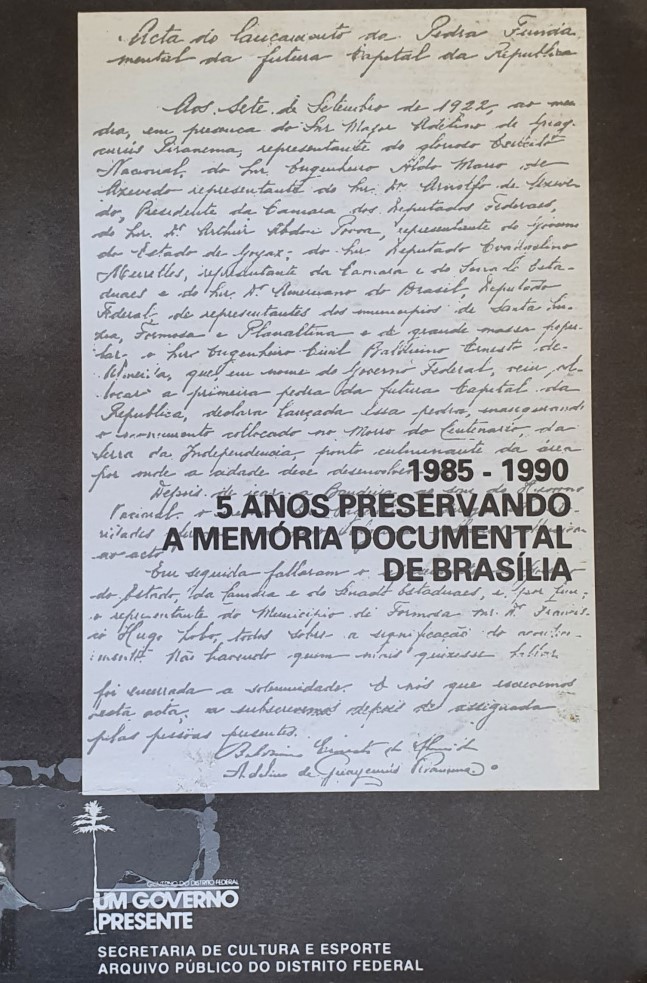 Acta do lançamento da Pedra Funda
mental da futura Capital da Republica
Aos Sete de Setembro de 1922, ao meu
dia, em presença do Snr Major Adelino de Guay-
curús Piranema, representante do glorioso Exercito
Nacional, do Snr. Engenheiro Aldo Mario de
Azevedo representante do Snr. Dr. Arnolfo de Azeve-
do, Presidente da Camara dos Deputados Federaes,
do Snr. Dr. Arthur Abdon Povoa, representante do Governo
do Estado de Goyaz; do Snr Deputado Evadastino
Meirelles, representante da Camara e do Senado Esta-
duaes e do Snr. Dr. Americano do Brasil, Deputado
Federal, de representantes dos municipios de Santa Lu-
zia, Formosa e Planaltina e de grande massa popu-
lar, o Snr Engenheiro Civil Balduino Ernesto de
Almeida, que, em nome do Governo Federal, veiu col-
locar a primeira pedra da futura Capital da
Republica, declara lançada essa pedra, inaugurando
o monumento collocado no Morro do Centenario, da
Serra da Independencia, ponto culminante da área
por onde a cidade deve
Depois de
Nacional, o
ao acto
1985 - 1990
5 ANOS PRESERVANDO
A MEMÓRIA DOCUMENTAL
DE BRASÍLIA
Em seguida fallaram o
do Estado, da Camara e do Senado Estaduaes, e, por fim,
o representante do Municipio de Formosa Snr. Dr. Francis-
co Hugo Lobo, todos sobre a significação do aconteci-
mento. Não havendo quem mais quizesse fallar
foi encerrada a solemnidade. E nós que escrevemos
esta acta, a subscrevemos depois de assignada
pelas pessoas presentes.
Balduino Ernesto de Almeida
Adelino de Guaycurús Piranema
GOVERNO DO DISTRITO FEDERAL
UM GOVERNO
PRESENTE
SECRETARIA DE CULTURA E ESPORTE
ARQUIVO PÚBLICO DO DISTRITO FEDERAL